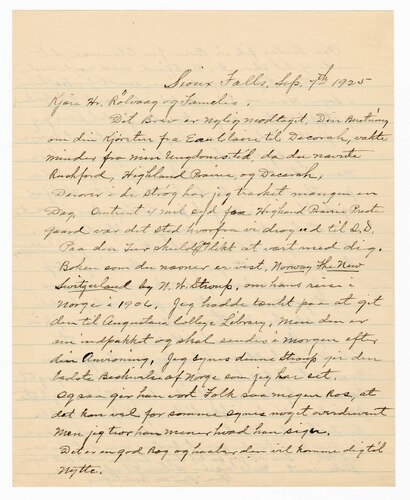 Sioux Falls, Sep. 7th 1925
Kjære Hr. Rölvaag og Familie.
Dit Brev er nylig modtaget, Din Beretning
om din Kjøretur fra Eau Claire til Decorah, vakte
minder fra min Ungdomstid, da du nævnte
Rushford, Highland Prairie, og Decorah,
Derover i de Strög har jeg trasket mangen en
Dag, Omtrent 4 mil syd fra Highland Prairie Preste
gaard var det sted hvorfra vi drog ud til S.D.
Paa den Tur skulde jeg likt at vært med dig.
Boken som du nævner er vist, Norway The New
Switzerland by N. W. Stroup, om hans reise i
Norge i 1906. Jeg hadde tænkt paa at git
den til Augustana College Library, Men den er
nu indpakket og skal sendes i morgen efter
din Anvisning. Jeg synes denne Stroup gir den
bedste Beskrivelse af Norge som jeg har set.
Og saa gir han vort Folk saa megen Ros, at
det kan vel for somme synes noget overdrevet
Men jeg tror han mener hvad han siger.
Det er en god Bog og haaber den vil komme dig til
Nytte.